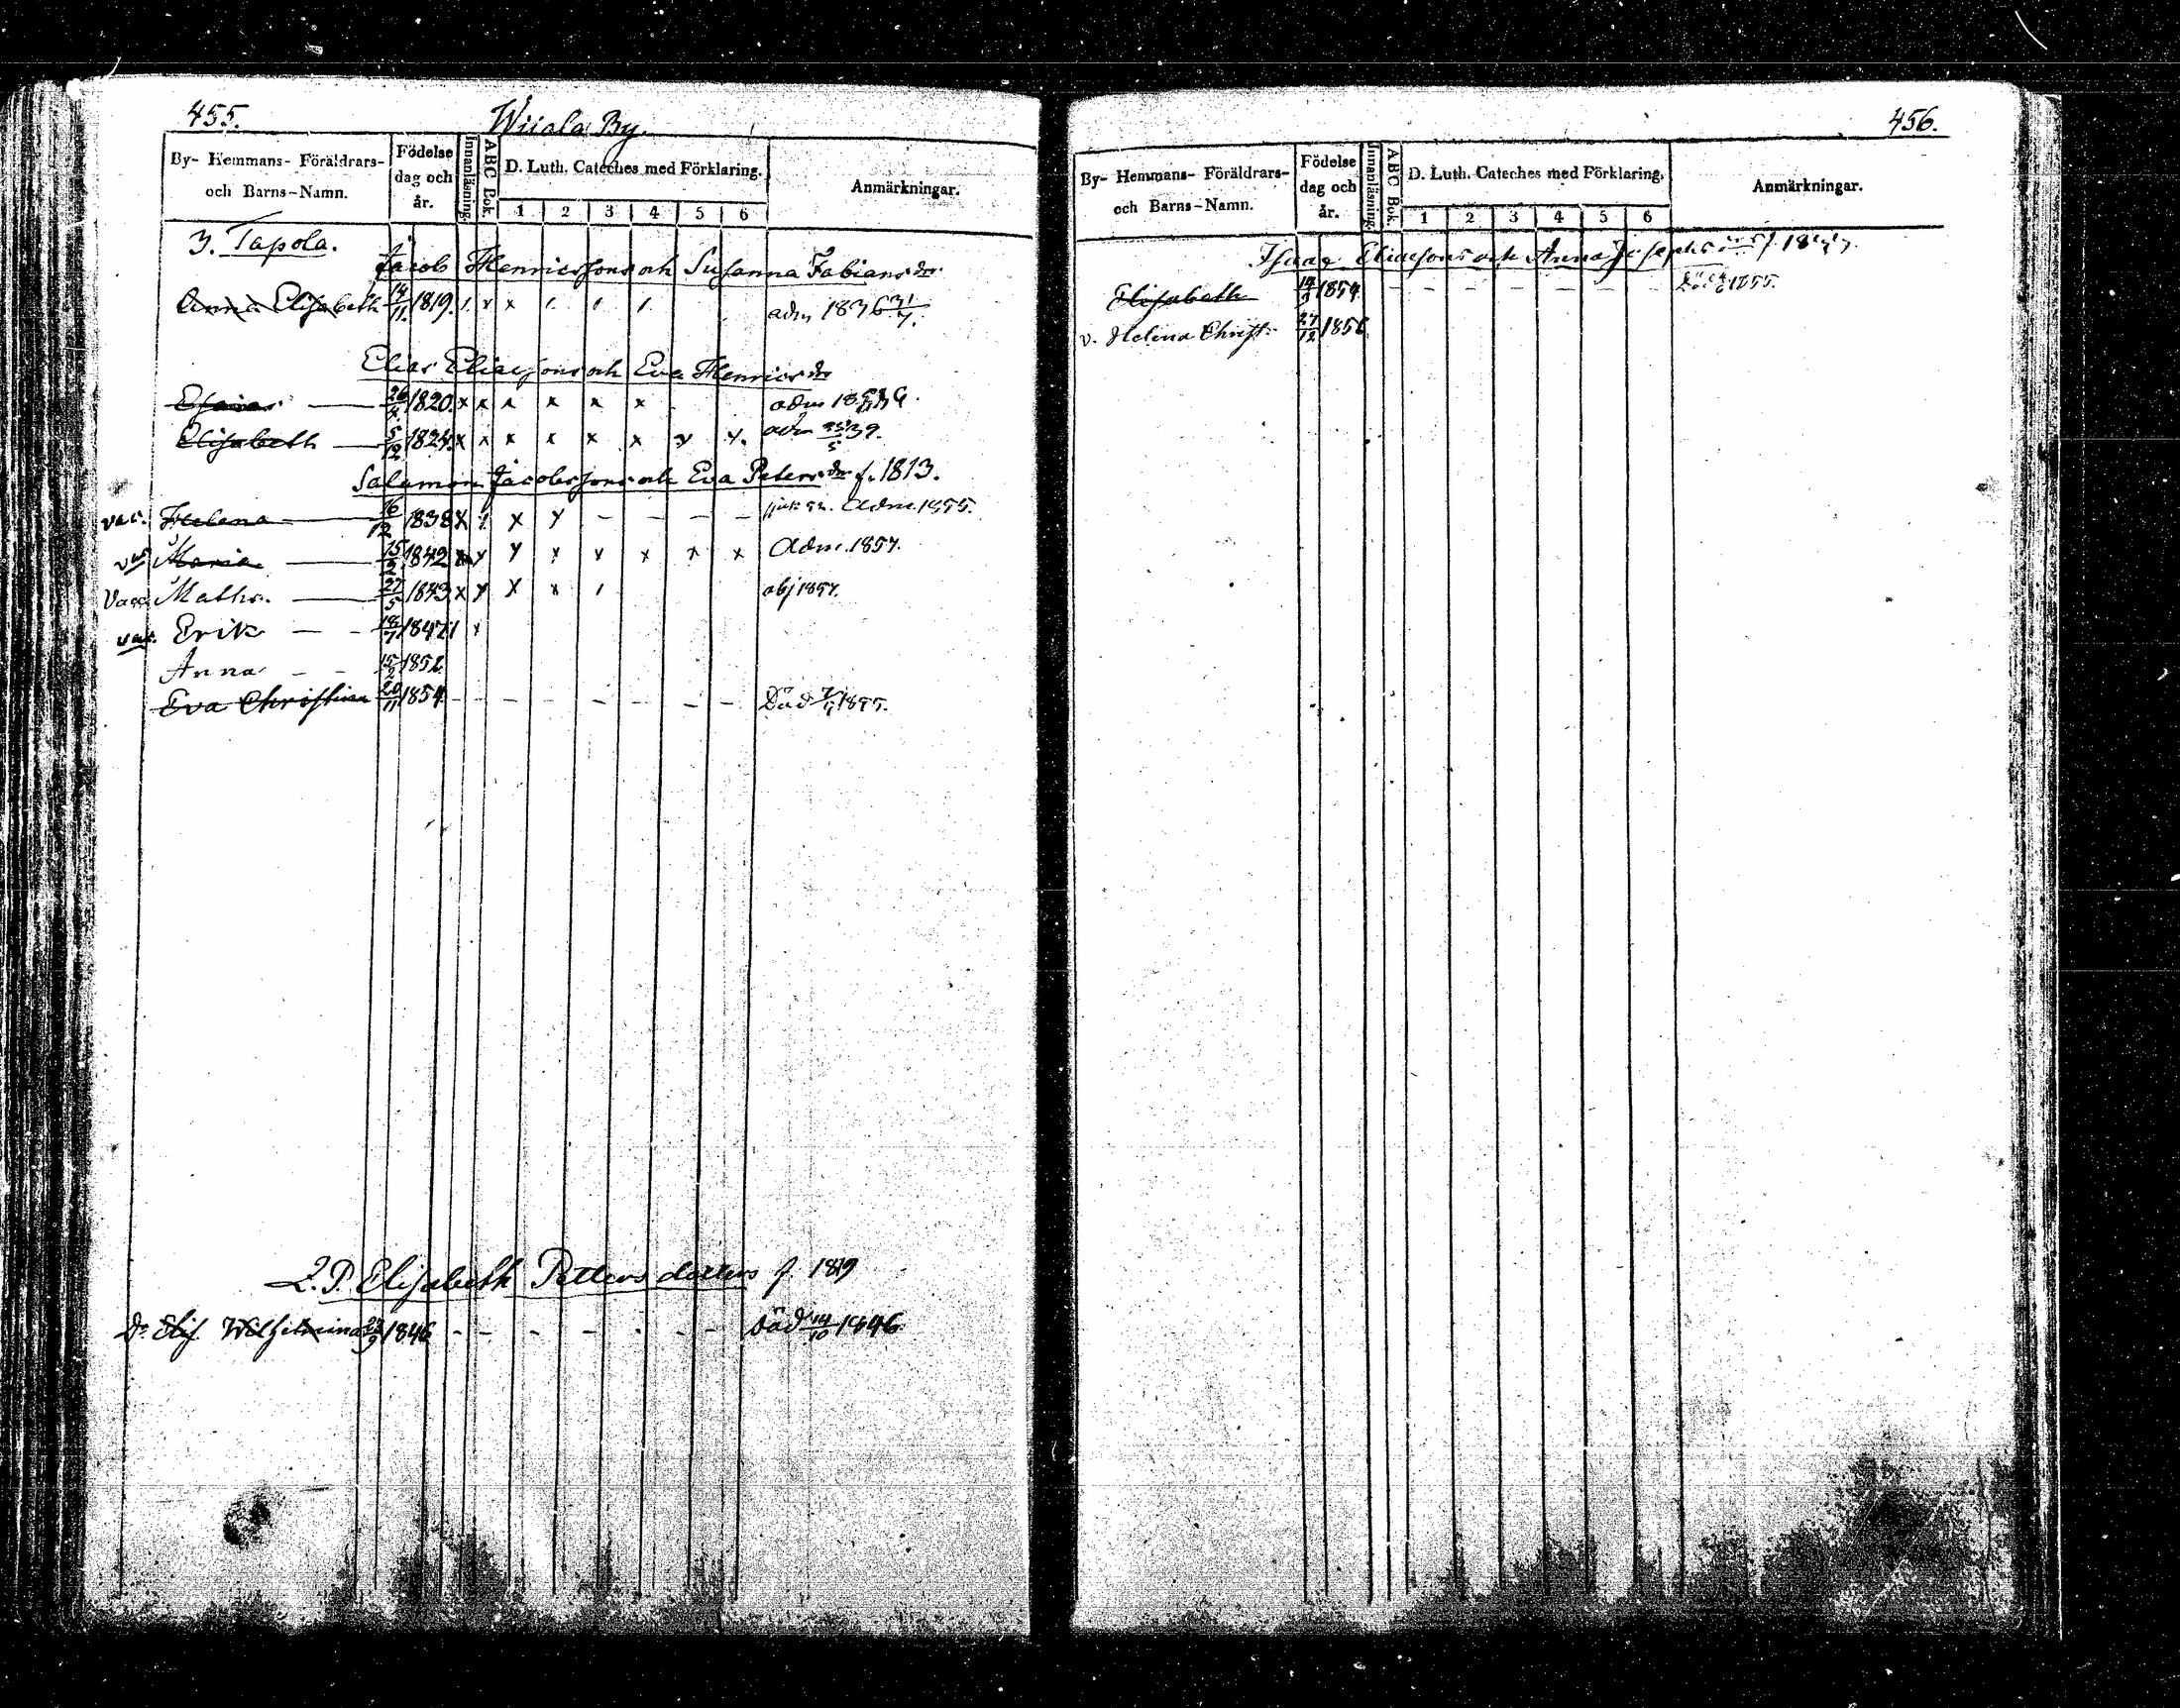 455.
Wiiala By.
By- Hemmans- Föräldrars- och Barns-Namn.
Födelse dag och år.
Innanläsning.
ABC Bok.
D. Luth. Cateches med Förklaring.
1 2 3 4 5 6
Anmärkningar.
3. Tapola.
Jacob Henricssons och Susanna Fabians dr
Anna Elisabeth 14/11 1819. / x x / / / adm 1836 31/7.
Elias Eliassons och Eva Henrics dr
Esaias — 1820. x x x x x x adm
Elisabeth — 5/12 1824. x x x x x x y y. adm 39.
Salamon Jacobssons och Eva Peters dr f. 1813.
vac. Helena — 16/12 1838 X / x y – – – – Adm. 1855.
vac Maria — 15/2 1842 x y y y v x x x Adm. 1857.
Vacc Maths. — 27/5 1843 x y x x / obj 1857.
vac. Erik — – 18/7 1847 / x
Anna – – 15/2 1852
Eva Christina 20/11 1854 – – – – – – – Död 1855.
2. P. Elisabeth Petters dotters f. 1819
Dr Elis. Wilhelmina 23/9 1846 – – – – – – – död 14/10 1846
456.
By- Hemmans- Föräldrars- och Barns-Namn.
Födelse dag och år.
Innanläsning.
ABC Bok.
D. Luth. Cateches med Förklaring.
1 2 3 4 5 6
Anmärkningar.
Isaac Eliassons och Anna Josephs
Elisabeth 1854 – – – – – – – 1855.
v. Helena Christ. 27/12 1856